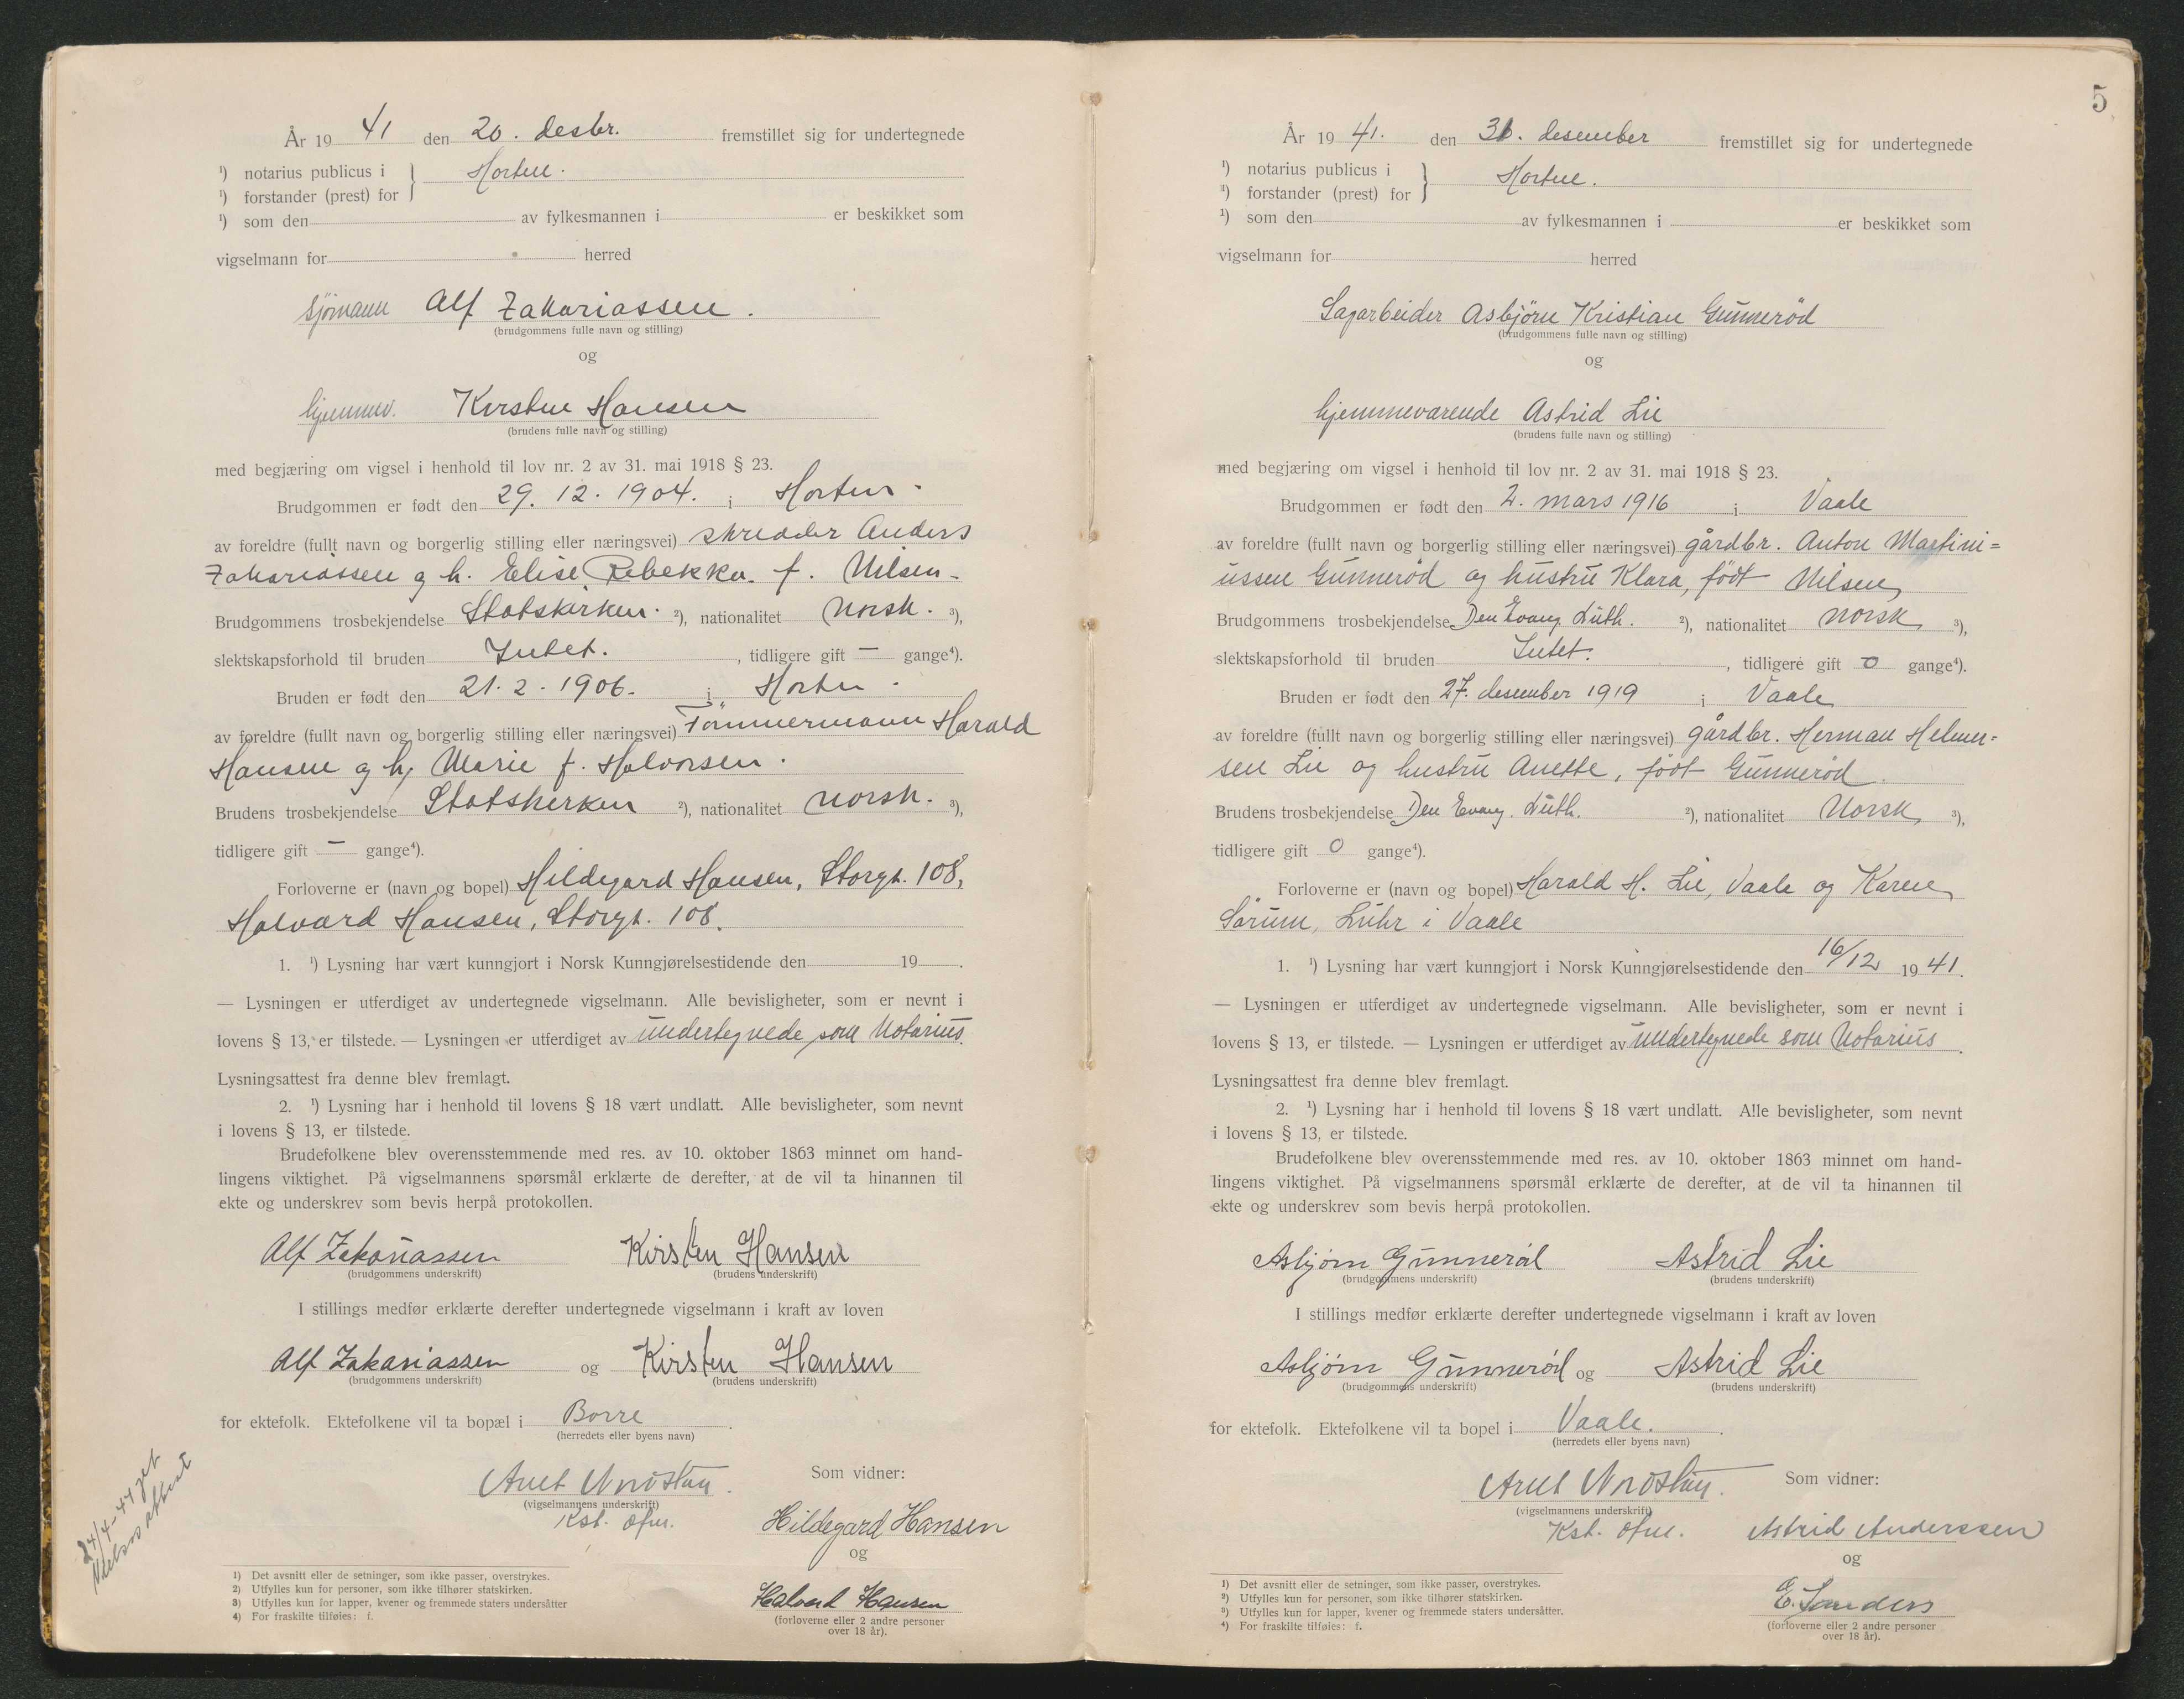 År 19 41 den 20. desbr. fremstillet sig for undertegnede
¹) notarius publicus i } Horten.
¹) forstander (prest) for
¹) som den av fylkesmannen i er beskikket som
vigselmann for herred
sjømann Alf Zakariassen.
(brudgommens fulle navn og stilling)
og
hjemmev. Kirsten Hansen
(brudens fulle navn og stilling)
med begjæring om vigsel i henhold til lov nr. 2 av 31. mai 1918 § 23.
Brudgommen er født den 29. 12. 1904. i Horten.
av foreldre (fullt navn og borgerlig stilling eller næringsvei) skredder Anders
Zakariassen g h. Elise Rebekka f. Nilsen.
Brudgommens trosbekjendelse Statskirken. ²), nationalitet Norsk. ³),
slektskapsforhold til bruden Intet. , tidligere gift — gange⁴).
Bruden er født den 21. 2. 1906. i Horten.
av foreldre (fullt navn og borgerlig stilling eller næringsvei) Tömmermann Harald
Hansen g h, Marie f. Halvorsen.
Brudens trosbekjendelse Statskirken ²), nationalitet Norsk. ³),
tidligere gift — gange⁴).
Forloverne er (navn og bopel) Hildegard Hansen, Storgt. 108,
Halvard Hansen, Storgt. 108.
1. ¹) Lysning har vært kunngjort i Norsk Kunngjørelsestidende den 19 .
— Lysningen er utferdiget av undertegnede vigselmann. Alle bevisligheter, som er nevnt i
lovens § 13, er tilstede. — Lysningen er utferdiget av undertegnede som Notarius.
Lysningsattest fra denne blev fremlagt.
2. ¹) Lysning har i henhold til lovens § 18 vært undlatt. Alle bevisligheter, som nevnt
i lovens § 13, er tilstede.
Brudefolkene blev overensstemmende med res. av 10. oktober 1863 minnet om hand-
lingens viktighet. På vigselmannens spørsmål erklærte de derefter, at de vil ta hinannen til
ekte og underskrev som bevis herpå protokollen.
Alf Zakariassen Kirsten Hansen
(brudgommens underskrift) (brudens underskrift)
I stillings medfør erklærte derefter undertegnede vigselmann i kraft av loven
Alf Zakariassen og Kirsten Hansen
(brudgommens underskrift) (brudens underskrift)
for ektefolk. Ektefolkene vil ta bopæl i Borre .
(herredets eller byens navn)
24/4-44 get
Som vidner:
(vigselmannens underskrift)
Kst. ofm.
Hildegard Hansen
og
Halvard Hansen
(forloverne eller 2 andre personer
over 18 år).
1) Det avsnitt eller de setninger, som ikke passer, overstrykes.
2) Utfylles kun for personer, som ikke tilhører statskirken.
3) Utfylles kun for lapper, kvener og fremmede staters undersåtter
4) For fraskilte tilføies: f.
5
År 19 41. den 31. desember fremstillet sig for undertegnede
¹) notarius publicus i } Horten.
¹) forstander (prest) for
¹) som den av fylkesmannen i er beskikket som
vigselmann for herred
Sagarbeider Asbjörn Kristian Gunneröd
(brudgommens fulle navn og stilling)
og
hjemmeværende Astrid Lie
(brudens fulle navn og stilling)
med begjæring om vigsel i henhold til lov nr. 2 av 31. mai 1918 § 23.
Brudgommen er født den 2. mars 1916 i Vaale
av foreldre (fullt navn og borgerlig stilling eller næringsvei) gårdbr. Anton Martini=
ussen Gunneröd og hustru Klara, född Nilsen
Brudgommens trosbekjendelse Den Evang. Luth. ²), nationalitet Norsk ³),
slektskapsforhold til bruden Intet. , tidligere gift 0 gange⁴).
Bruden er født den 27. desember 1919 i Vaale
av foreldre (fullt navn og borgerlig stilling eller næringsvei) gårdbr. Herman Helmer-
sen Lie og hustru Anette, född Gunneröd.
Brudens trosbekjendelse Den Evang. Luth. ²), nationalitet Norsk ³),
tidligere gift 0 gange⁴).
Forloverne er (navn og bopel) Harald H. Lie, Vaale og Karen
Sörum, Luhr i Vaale
1. ¹) Lysning har vært kunngjort i Norsk Kunngjørelsestidende den 16/12 19 41.
— Lysningen er utferdiget av undertegnede vigselmann. Alle bevisligheter, som er nevnt i
lovens § 13, er tilstede. — Lysningen er utferdiget av undertegnede som Notarius .
Lysningsattest fra denne blev fremlagt.
2. ¹) Lysning har i henhold til lovens § 18 vært undlatt. Alle bevisligheter, som nevnt
i lovens § 13, er tilstede.
Brudefolkene blev overensstemmende med res. av 10. oktober 1863 minnet om hand-
lingens viktighet. På vigselmannens spørsmål erklærte de derefter, at de vil ta hinannen til
ekte og underskrev som bevis herpå protokollen.
Asbjörn Gunneröd Astrid Lie
(brudgommens underskrift) (brudens underskrift)
I stillings medfør erklærte derefter undertegnede vigselmann i kraft av loven
Asbjörn Gunneröd og Astrid Lie
(brudgommens underskrift) (brudens underskrift)
for ektefolk. Ektefolkene vil ta bopel i Vaale. .
(herredets eller byens navn)
Som vidner:
(vigselmannens underskrift)
Kst. ofm.
Astrid Anderssen
og
E. Sanders
(forloverne eller 2 andre personer
over 18 år).
1) Det avsnitt eller de setninger, som ikke passer, overstrykes.
²) Utfylles kun for personer, som ikke tilhører statskirken.
³) Utfylles kun for lapper, kvener og fremmede staters undersåtter.
⁴) For fraskilte tilføies: f.